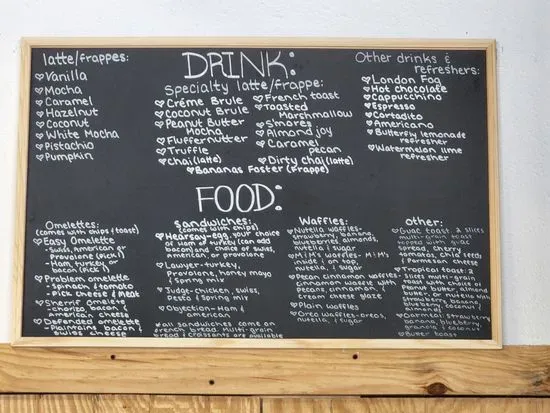 DRINK:
latte/frappes:
♡Vanilla
♡Mocha
♡Caramel
♡Hazelnut
♡Coconut
♡White Mocha
♡Pistachio
♡Pumpkin
Specialty latte/frappe:
♡Créme Brule
♡Coconut Brule
♡Peanut Butter
Mocha
♡Fluffernutter
♡Truffle
♡Chai(latte)
♡French toast
♡Toasted
Marshmallow
♡Smores
♡Almond joy
♡Caramel
pecan
♡Dirty chai(latte)
♡Bananas Foster (Frappe)
Other drinks &
refreshers:
♡London Fog
♡Hot chocolate
♡Cappucchino
♡Espresso
♡Cortadito
♡Americano
♡Butterfly lemonade
refresher
♡Watermelon lime
refresher
FOOD:
Omelettes:
(comes with chips & toast)
♡Easy Omelette
- Swiss, American or
Provolone (pick 1)
- Ham, turkey or
bacon (pick 1)
♡Problem omelette
- Spinach & tomato
- Pick cheese & meat
♡Sheriff omelette
- chorizo, bacon &
American cheese
♡Defended omelette
- Plaintains, bacon &
swiss cheese
Sandwiches:
(comes with chips)
♡Hearsay-egg, your choice
of Ham or turkey (can add
bacon) and choice of swiss,
american, or provolone
♡Lawyer-turkey,
Provolone, honey mayo
& spring mix
♡Judge-chicken, swiss,
Pesto & spring mix
♡Objection-Ham &
american
*all sandwiches come on
french bread. Multi-grain
bread & croissants are available
Waffles:
♡Nutella waffles-
strawberry, banana,
blueberries, almonds,
nutella & sugar
♡M&M's waffles- M&M's
inside & on top,
nutella, & sugar
♡Pecan cinnamon waffles-
cinnamon waffle with
pecans, cinnamon, &
cream cheese glaze
♡Plain waffles
♡Oreo waffles-oreos,
nutella, & sugar
other:
♡Guac toast: 2 slices
multi-grain toast
topped with guac
spread, cherry
tomatoes, chili seeds &
Parmesan cheese
♡Tropical toast: 2
slices multi-grain
toast with choice of
Peanut butter, almond
butter, or nutella with
strawberry, banana,
blueberry, &
almonds
♡Oatmeal strawberry,
banana, blueberry,
granola & coconut
♡Butter toast